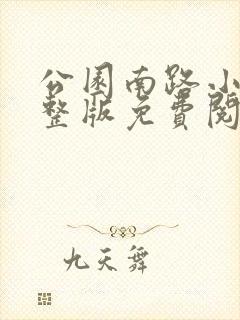 公園南路小
整版免費閱
九天舞